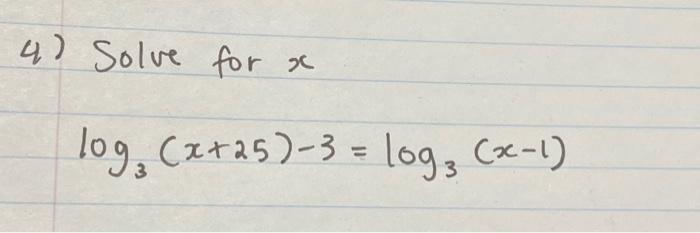 4) Solve for x
log₃ (x+25)-3 = log₃ (x-1)